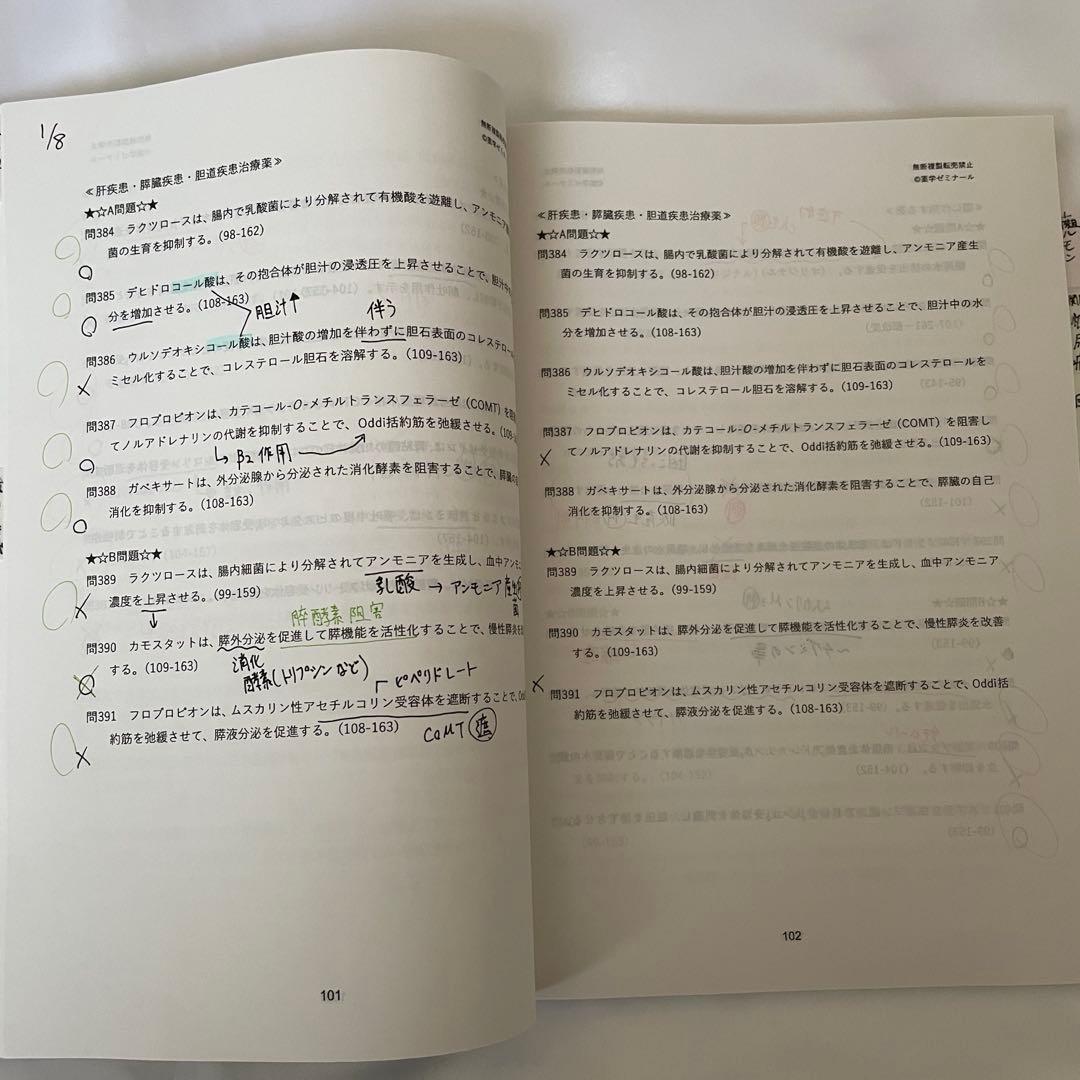 1/8
無断複製転売禁止
©薬学ゼミ
≪肝疾患・膵臓疾患・胆道疾患治療薬≫
★☆A問題☆★
問384 ラクツロースは、腸内で乳酸菌により分解されて有機酸を遊離し、アンモニア
菌の生育を抑制する。(98-162)
問385 デヒドロコール酸は、その抱合体が胆汁の浸透圧を上昇させることで、胆汁中
分を増加させる。(108-163)
胆汁↑
伴う
問386 ウルソデオキシコール酸は、胆汁酸の増加を伴わずに胆石表面のコレステロー
ミセル化することで、コレステロール胆石を溶解する。(109-163)
×
問387 フロプロピオンは、カテコール-O-メチルトランスフェラーゼ(COMT)を
てノルアドレナリンの代謝を抑制することで、Oddi括約筋を弛緩させる。(109-
β2作用
問388 ガベキサートは、外分泌腺から分泌された消化酵素を阻害することで、膵臓の
消化を抑制する。(108-163)
★☆B問題☆★
問389 ラクツロースは、腸内細菌により分解されてアンモニアを生成し、血中アンモ
乳酸 → アンモニア産生菌
× 濃度を上昇させる。(99-159)
↓
膵酵素阻害
問390 カモスタットは、膵外分泌を促進して膵機能を活性化することで、慢性膵炎を
する。(109-163)
消化
酵素(トリプシンなど)
ピペリドレート
問391 フロプロピオンは、ムスカリン性アセチルコリン受容体を遮断することで、Od
約筋を弛緩させて、膵液分泌を促進する。(108-163)
COMT
×
101
無断複製転売禁止
©薬学ゼミナール
≪肝疾患・膵臓疾患・胆道疾患治療薬≫
★☆A問題☆★
問384 ラクツロースは、腸内で乳酸菌により分解されて有機酸を遊離し、アンモニア産生
菌の生育を抑制する。(98-162)
問385 デヒドロコール酸は、その抱合体が胆汁の浸透圧を上昇させることで、胆汁中の水
分を増加させる。(108-163)
問386 ウルソデオキシコール酸は、胆汁酸の増加を伴わずに胆石表面のコレステロールを
ミセル化することで、コレステロール胆石を溶解する。(109-163)
問387 フロプロピオンは、カテコール-O-メチルトランスフェラーゼ(COMT)を阻害し
× てノルアドレナリンの代謝を抑制することで、Oddi括約筋を弛緩させる。(109-163)
問388 ガベキサートは、外分泌腺から分泌された消化酵素を阻害することで、膵臓の自己
消化を抑制する。(108-163)
★☆B問題☆★
問389 ラクツロースは、腸内細菌により分解されてアンモニアを生成し、血中アンモニア
濃度を上昇させる。(99-159)
問390 カモスタットは、膵外分泌を促進して膵機能を活性化することで、慢性膵炎を改善
する。(109-163)
× 問391 フロプロピオンは、ムスカリン性アセチルコリン受容体を遮断することで、Oddi括
約筋を弛緩させて、膵液分泌を促進する。(108-163)
102